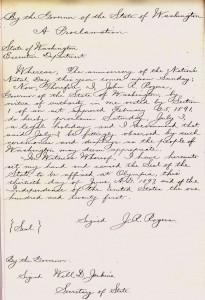 By the Governor of the State of Washington
A Proclamation
State of Washington
Executive Department
Whereas, The anniversary of the Nation's
Natal Day this year comes upon Sunday;
Now, Therefore, I, John R. Rogers,
Governor of the State of Washington, by
virtue of authority in me vested by Section
1 of an act approved February 6, 1891,
do hereby proclaim Saturday, July 3,
a legal holiday, and I recommend that
said July 3 be fittingly observed by such
ceremonies and doings as the people of
Washington may deem appropriate.
In Witness Whereof, I have hereunto
set my hand and caused the Seal of the
State to be affixed at Olympia, this
thirtieth day of June A.D. 1897 and of the
Independence of the United States the one
hundred and twenty first.
{Seal} Signed J.R. Rogers
By the Governor
Signed Will D. Jenkins
Secretary of State